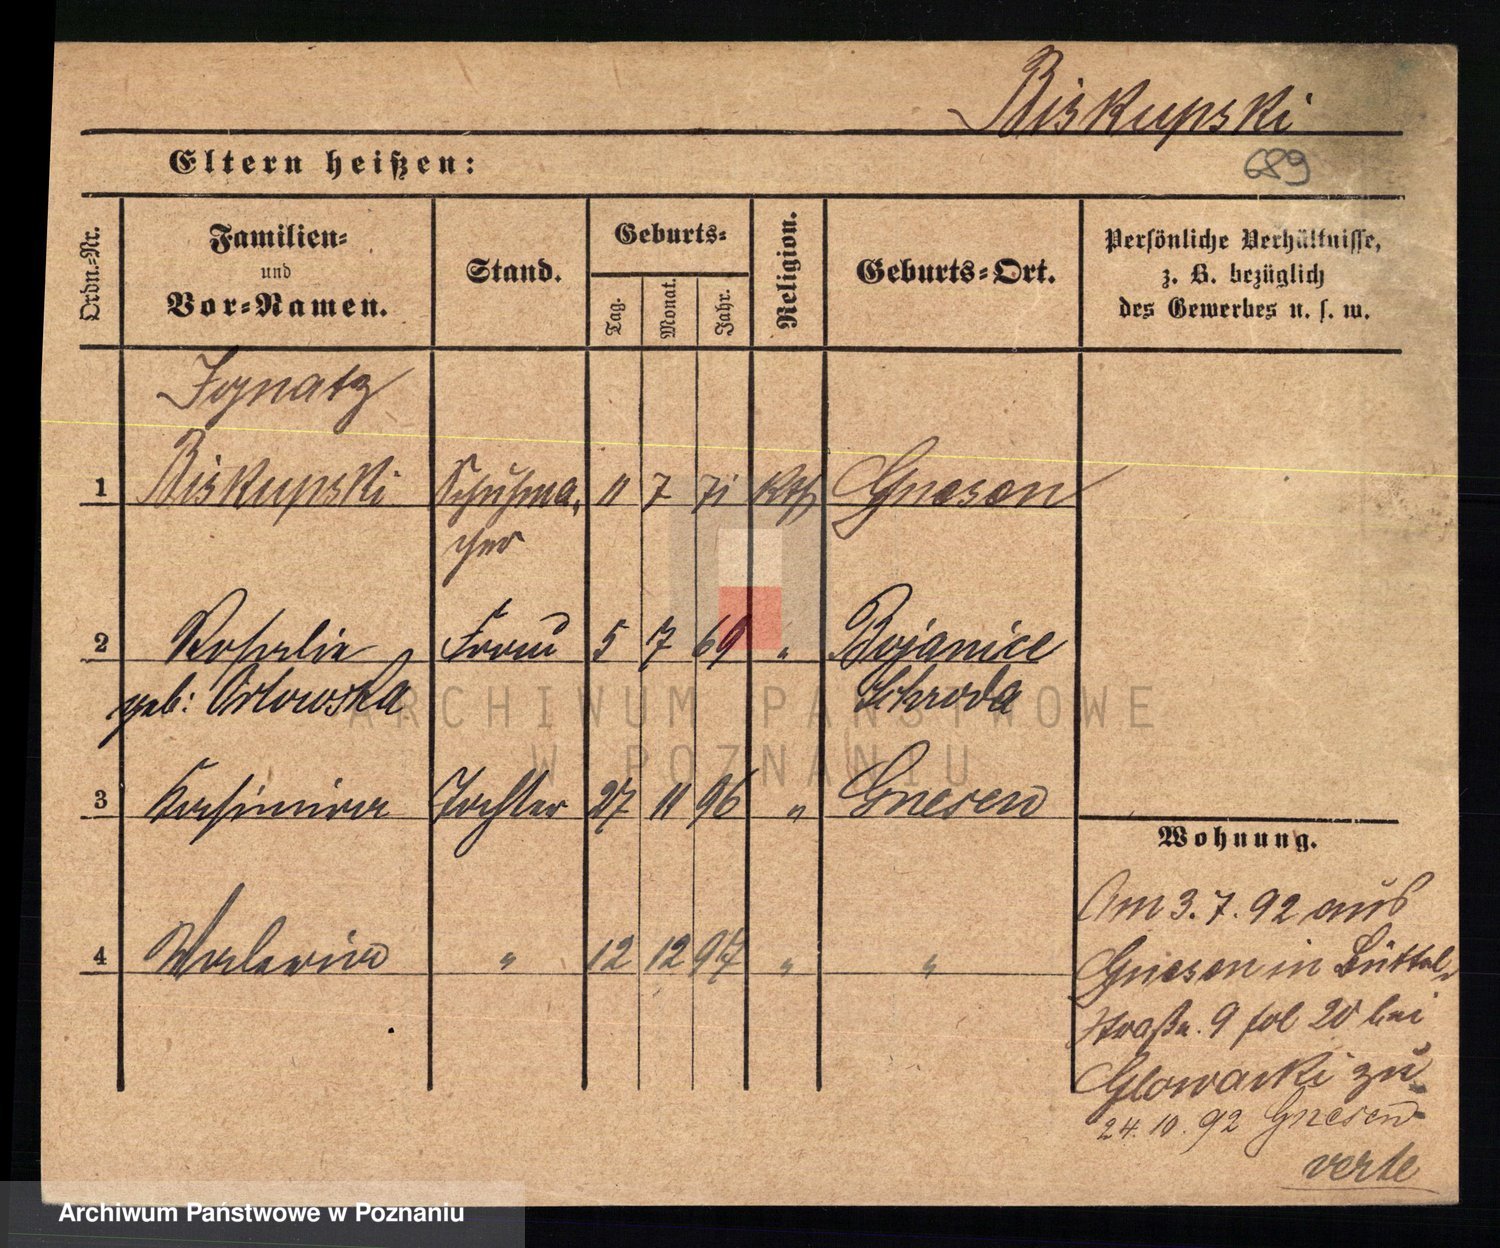 Biskupski
Eltern heißen:
689
Ordn.-Nr.
Familien-
und
Vor-Namen.
Stand.
Geburts-
Tag.
Monat.
Jahr.
Religion.
Geburts-Ort.
Persönliche Verhältnisse,
z. B. bezüglich
des Gewerbes u. s. w.
Ignatz
1 Biskupski Schuhma- 11 7 71 kth Gnesen
cher
2 Rosalie Frau 5 7 69 " Bojanice
geb: Orlowska Schroda
3 Kasimira Tochter 27 11 96 " Gnesen
4 Waleria " 12 12 97 " "
Wohnung.
Am 3.7.92 aus
Gnesen in Büttel-
straße. 9 fol 20 bei
Glowacki zu
24.10.92 Gnesen
verte
ARCHIWUM PAŃSTWOWE
W POZNANIU
Archiwum Państwowe w Poznaniu